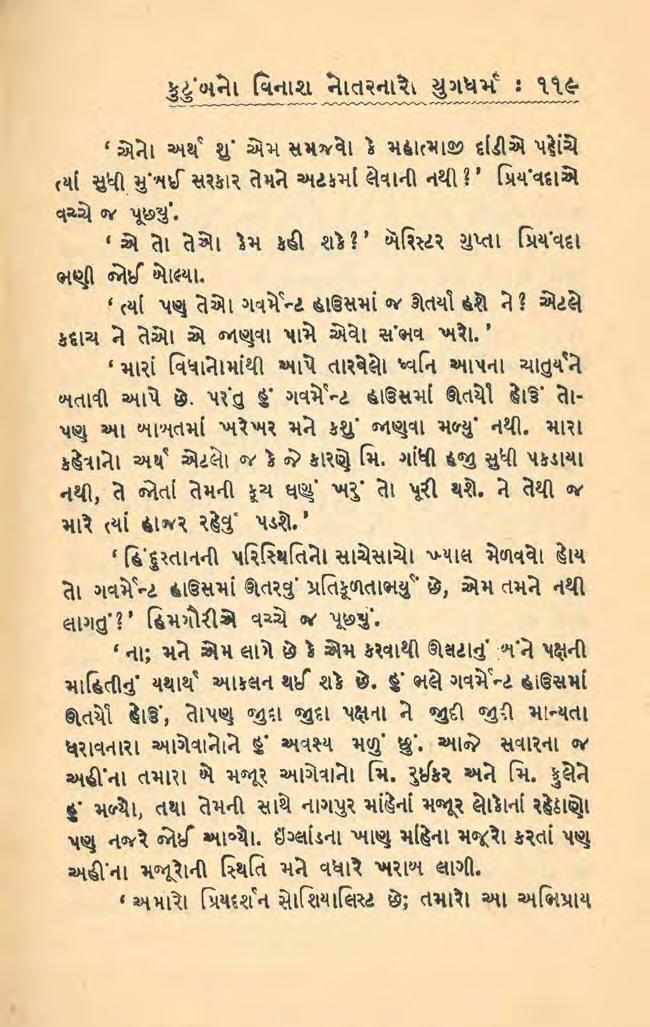 કુટુંબનો વિનાશ નોતરનારો યુગધર્મ : ૧૧૯
‘એનો અર્થ શું એમ સમજવો કે મહાત્માજી દાંડીએ પહોંચે
ત્યાં સુધી મુંબઈ સરકાર તેમને અટકમાં લેવાની નથી ?’ પ્રિયંવદાએ
વચ્ચે જ પૂછ્યું.
‘એ તો તેઓ કેમ કહી શકે ?’ બૅરિસ્ટર ગુપ્તા પ્રિયંવદા
ભણી જોઈ બોલ્યા.
‘ત્યાં પણ તેઓ ગવર્મેન્ટ હાઉસમાં જ ઊતર્યા હશે ને ? એટલે
કદાચ ને તેઓ એ જાણવા પામે એવો સંભવ ખરો.’
‘મારાં વિધાનોમાંથી આપે તારવેલો ધ્વનિ આપના ચાતુર્યને
બતાવી આપે છે. પરંતુ હું ગવર્મેન્ટ હાઉસમાં ઊતર્યો હોઉં તો-
પણ આ બાબતમાં ખરેખર મને કશું જાણવા મળ્યું નથી. મારા
કહેવાનો અર્થ એટલો જ કે જે કારણે મિ. ગાંધી હજી સુધી પકડાયા
નથી, તે જોતાં તેમની કૂચ ઘણું ખરું તો પૂરી થશે. ને તેથી જ
મારે ત્યાં હાજર રહેવું પડશે.’
‘હિંદુસ્તાનની પરિસ્થિતિનો સાચેસાચો ખ્યાલ મેળવવો હોય
તો ગવર્મેન્ટ હાઉસમાં ઊતરવું પ્રતિકૂળતાભર્યું છે, એમ તમને નથી
લાગતું ?’ હિમગૌરીએ વચ્ચે જ પૂછ્યું.
‘ના; મને એમ લાગે છે કે એમ કરવાથી ઊલટાનું બંને પક્ષની
માહિતીનું યથાર્થ આકલન થઈ શકે છે. હું ભલે ગવર્મેન્ટ હાઉસમાં
ઊતર્યો હોઉં, તોપણ જુદા જુદા પક્ષના ને જુદી જુદી માન્યતા
ધરાવનારા આગેવાનોને હું અવશ્ય મળું છું. આજે સવારના જ
અહીંના તમારા બે મજૂર આગેવાનો મિ. રુઈકર અને મિ. કુલેને
હું મળ્યો, તથા તેમની સાથે નાગપુર માંહેનાં મજૂર લોકોનાં રહેઠાણો
પણ નજરે જોઈ આવ્યો. ઇંગ્લાંડના ખાણ માંહેના મજૂરો કરતાં પણ
અહીંના મજૂરોની સ્થિતિ મને વધારે ખરાબ લાગી.
‘અમારો પ્રિયદર્શન સોશિયાલિસ્ટ છે; તમારો આ અભિપ્રાય